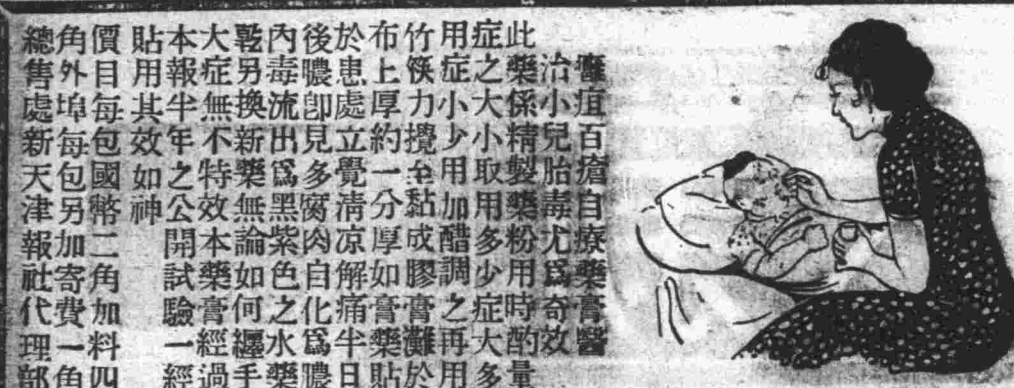 癰疽百瘡自療藥膏醫
治小兒胎毒尤爲奇效
此藥係精製藥粉用時酌量
症之大小取用多少症大多
用症小少用加醋調之再用
竹筷力攪至黏成膠膏灘於
布上厚約一分厚如膏藥貼
於患處立覺清凉解痛半日
後膿卽見多腐肉白化爲膿
內毒流出爲黑紫色之水藥
乾另換新藥無論如何纏手
大症無不特效本藥膏經過
本報半年之公開試驗一經
貼用其效如神
價目每包國幣二角加料四
角外埠每包另加寄費一角
總售處新天津報社代理部